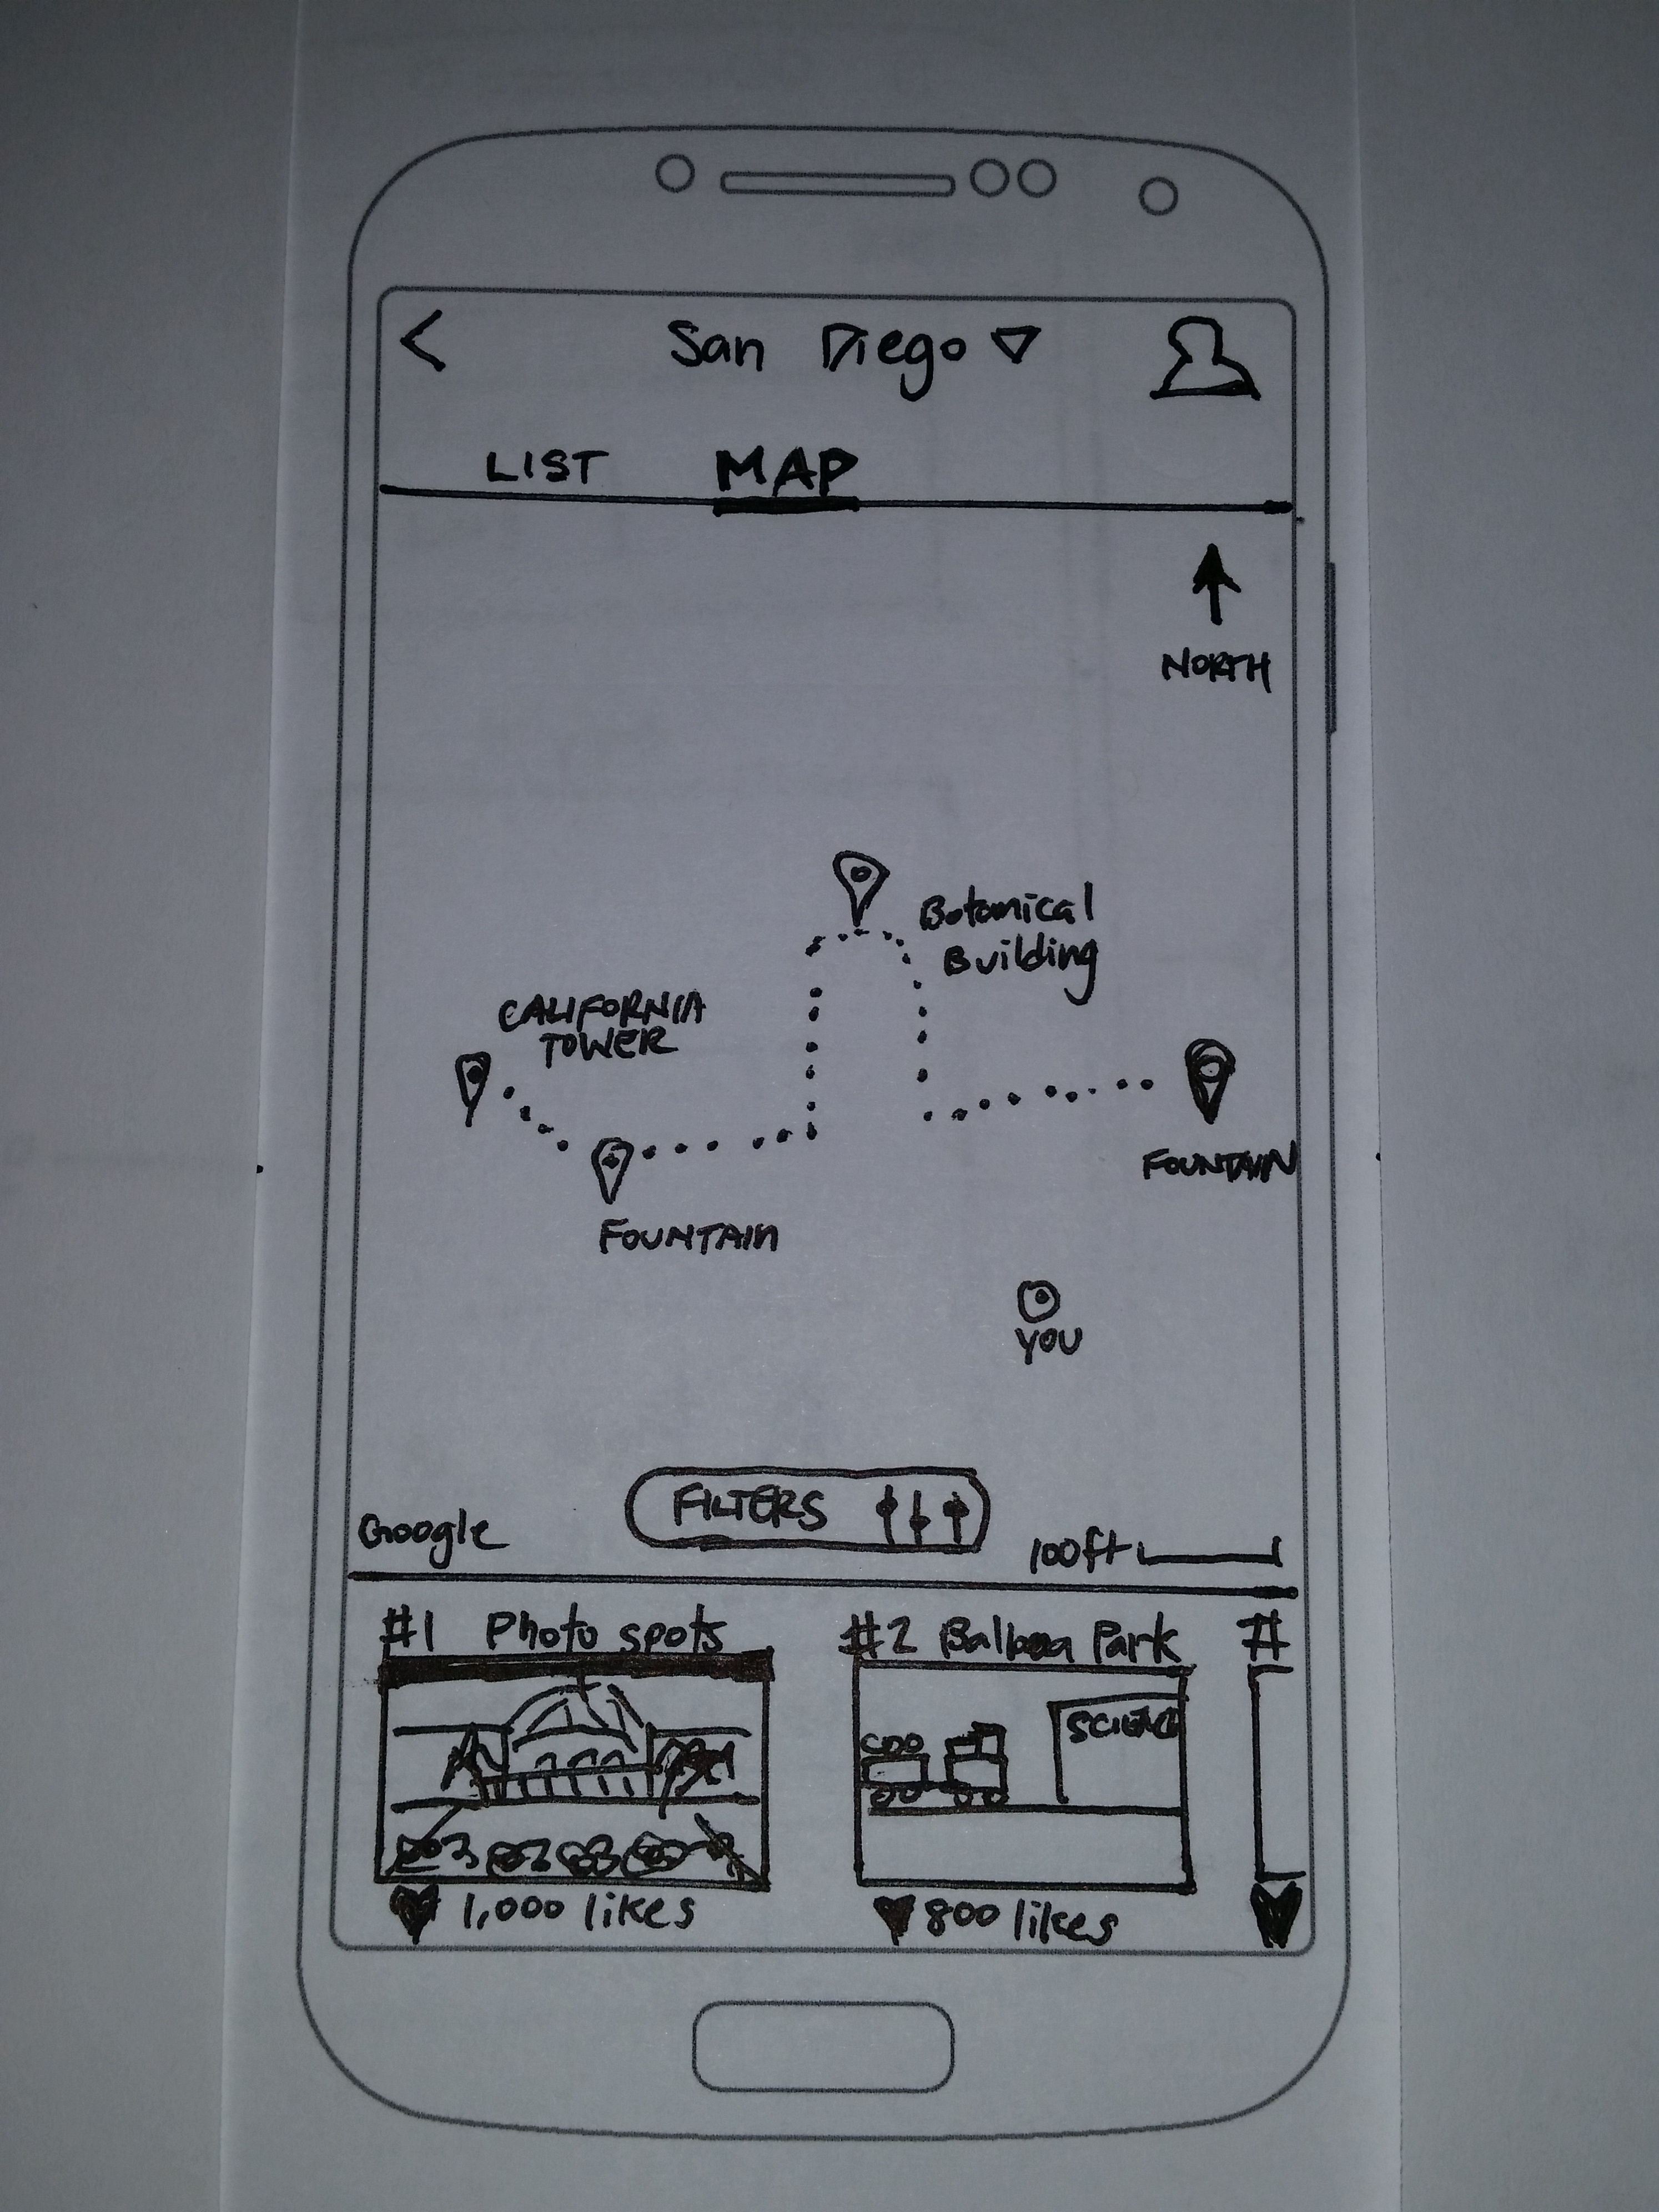 San Diego
LIST MAP
NORTH
Botanical
Building
CALIFORNIA
TOWER
FOUNTAIN
FOUNTAIN
YOU
FILTERS
Google
100ft
#1 Photo spots
#2 Balboa Park
#
SCIENCE
1,000 likes
800 likes